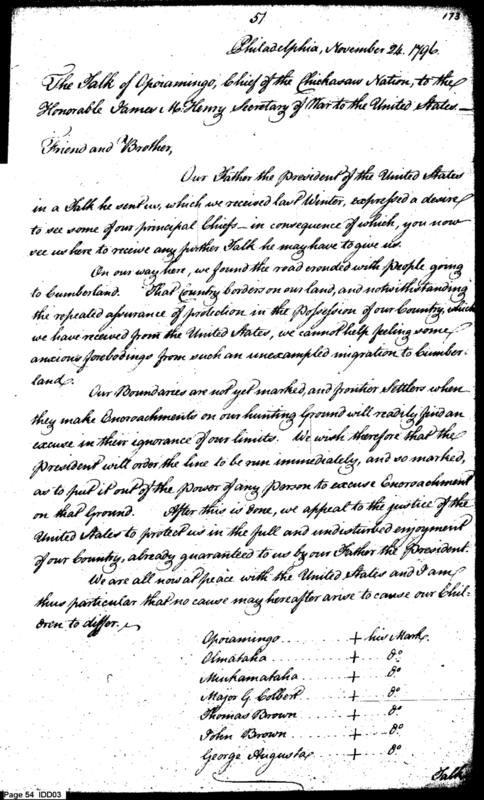 51
173
Philadelphia, November 24. 1796.
The Talk of Opoiamingo, Chief of the Chickasaw Nation, to the
Honorable James McHenry Secretary of War to the United States—
Friend and Brother,
Our Father the President of the United States
in a Talk he sent us, which we received last Winter, expressed a desire
to see some of our principal Chiefs— in consequence of which, you now
see us here to receive any further Talk he may have to give us.
On our way here, we found the road crouded with people going
to Cumberland. That Country borders on our land, and notwithstanding
the repeated assurance of protection in the Possession of our Country, which
we have received from the United States, we cannot help feeling some
anxious forebodings from such an unexampled migration to Cumber-
land.
Our Boundaries are not yet marked, and frontier Settlers when
they make Encroachments on our hunting Ground will readily find an
excuse in their ignorance of our limits. We wish therefore that the
President will order the line to be run immediately, and so marked,
as to put it out of the Power of any Person to excuse Encroachment
on that Ground. After this is done, we appeal to the justice of the
United States to protect us in the full and undisturbed enjoyment
of our Country, already guaranteed to us by our Father the President.
We are all now at peace with the United States and I am
thus particular that no cause may hereafter arise to cause our Chil-
dren to differ.
Opoiamingo + his Mark
Olmataha + do
Muukamataha + do
Major G. Colbert + do
Thomas Brown + do
John Brown + do
George Augusta + do
Talk
Page 54 IDD03